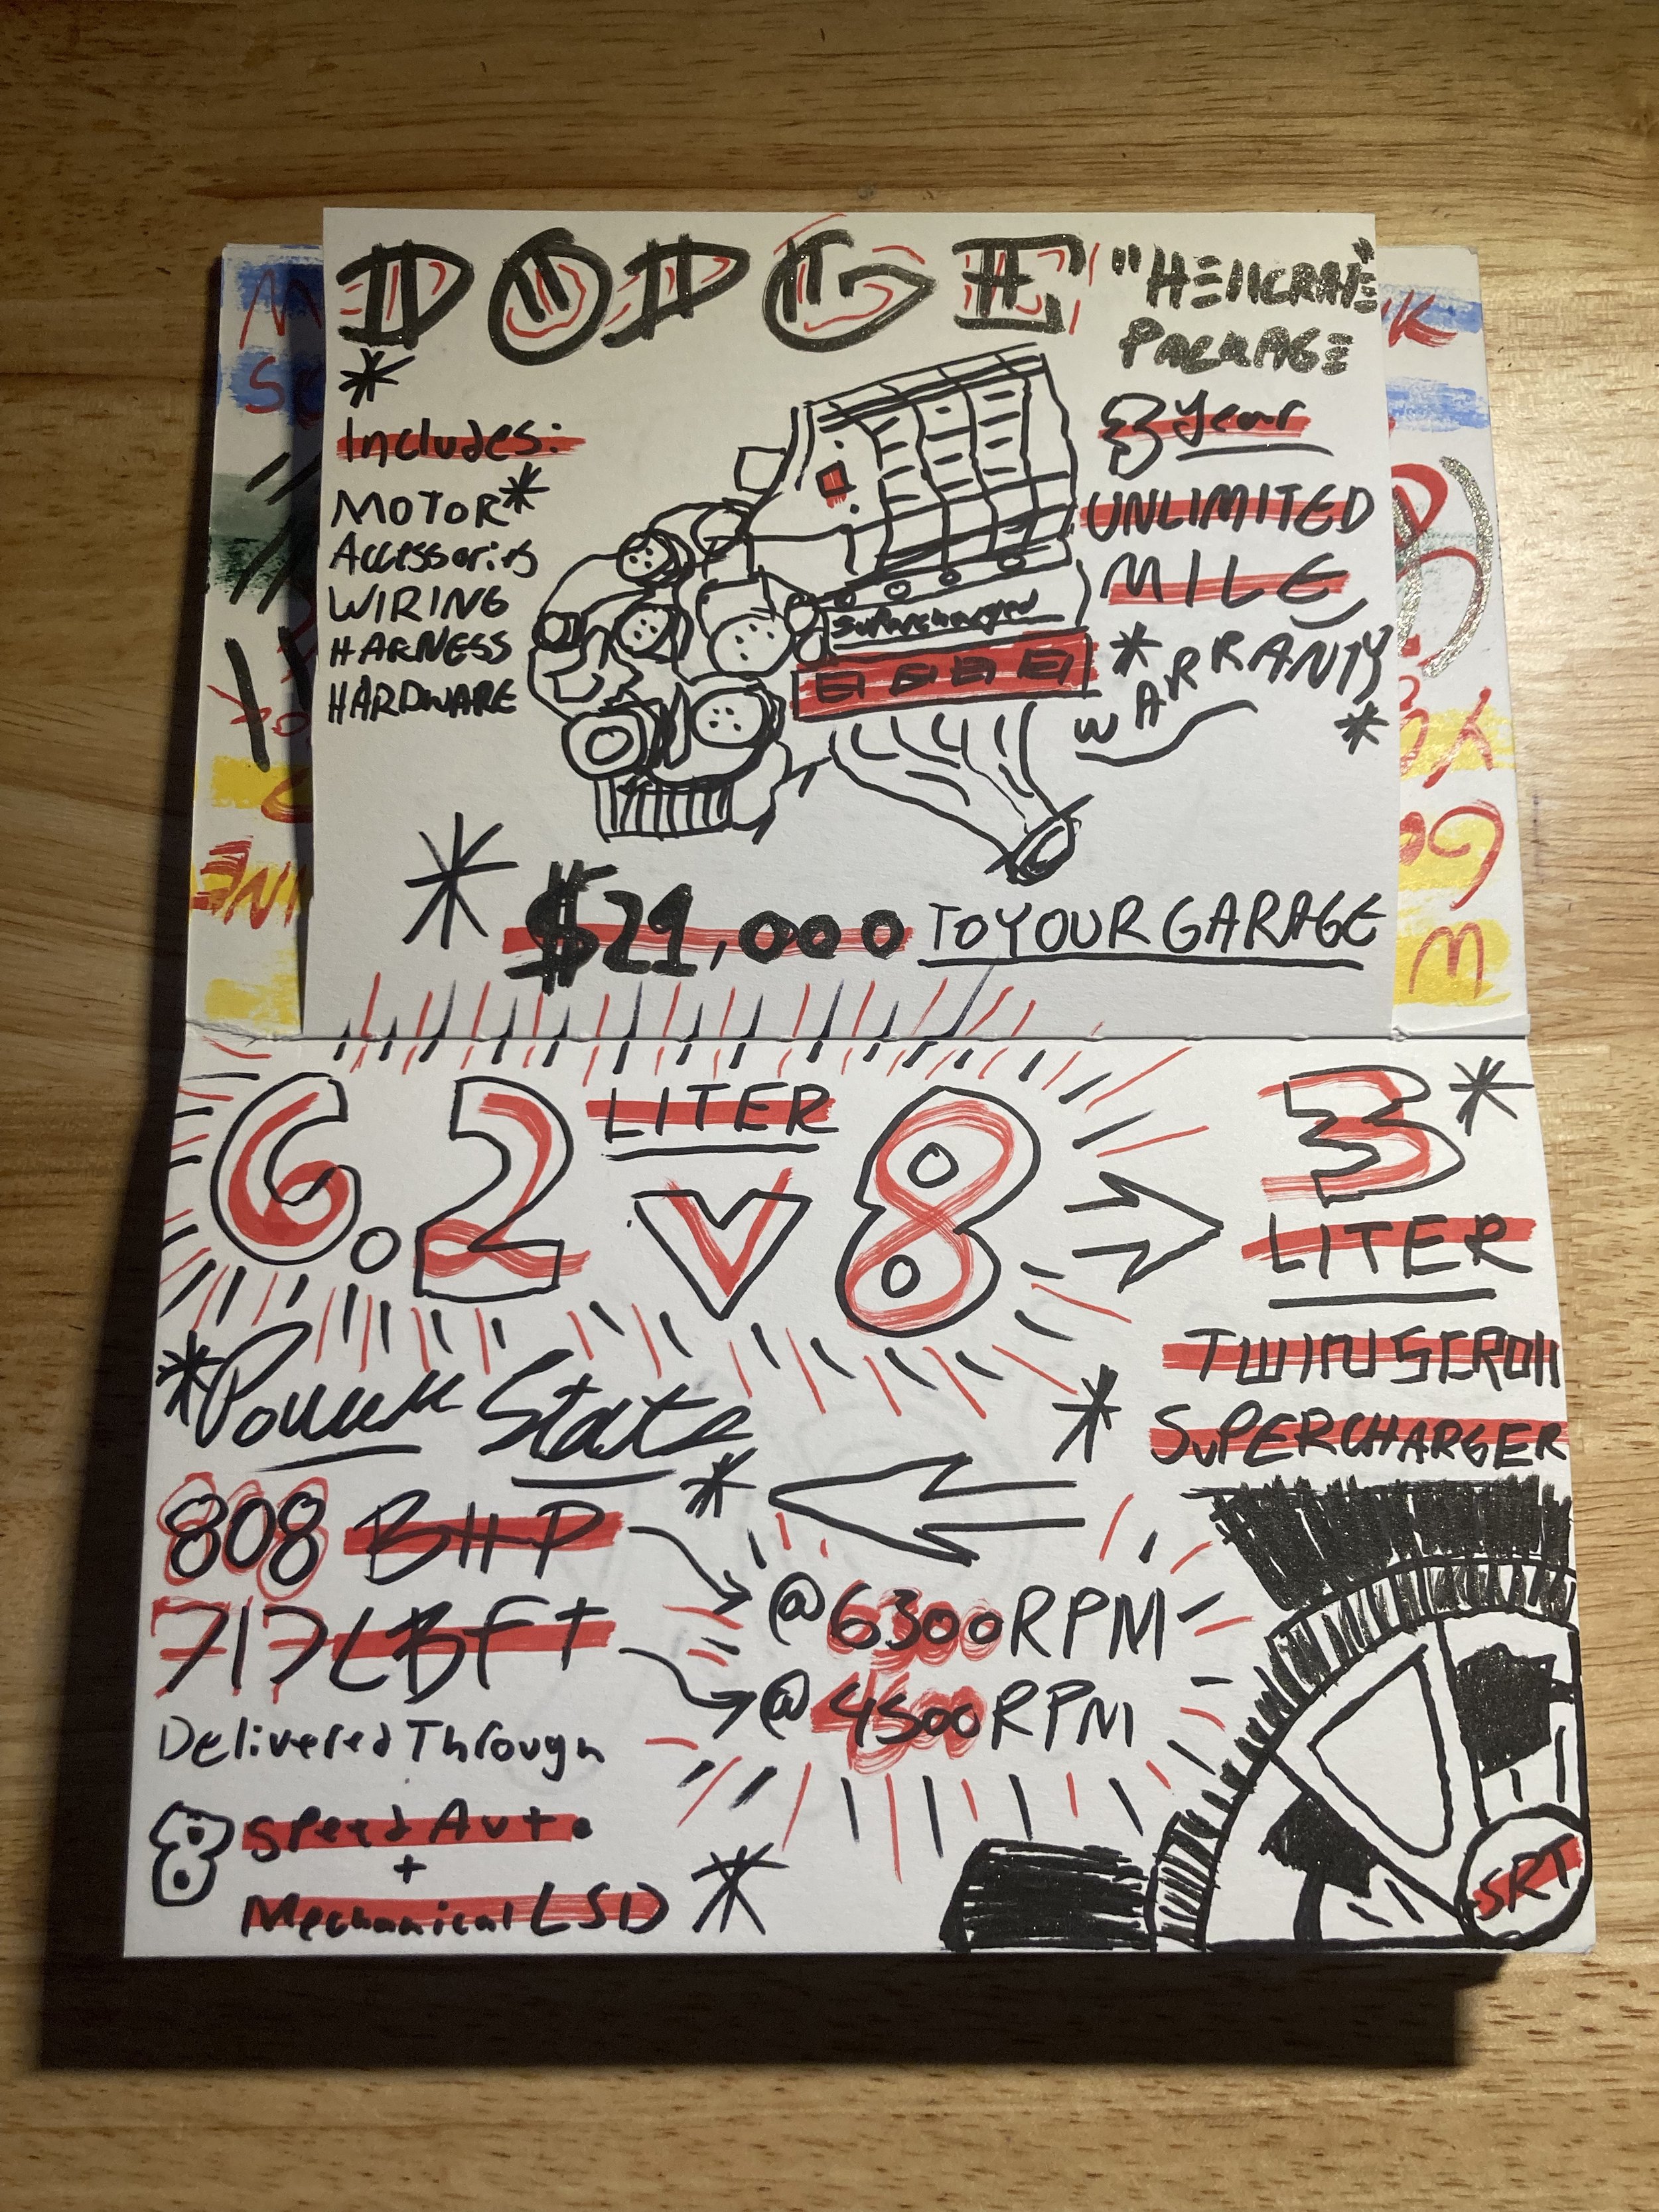 DODGE
"HEllCRATE"
PACKAGE
*
Includes:
MOTOR*
Accessories
WIRING
HARNESS
HARDWARE
Supercharged
3 Year
UNLIMITED
MILE
* WARRANTY *
* $21,000 TO YOUR GARAGE
6.2 LITER V8
3*
LITER
TWIN SCROll
* SUPERCHARGER
*Power Stats*
808 BHP
@6300RPM
717 LBFT
@4500RPM
Delivered Through
8 Speed Auto
+
Mechanical LSD *
SRT